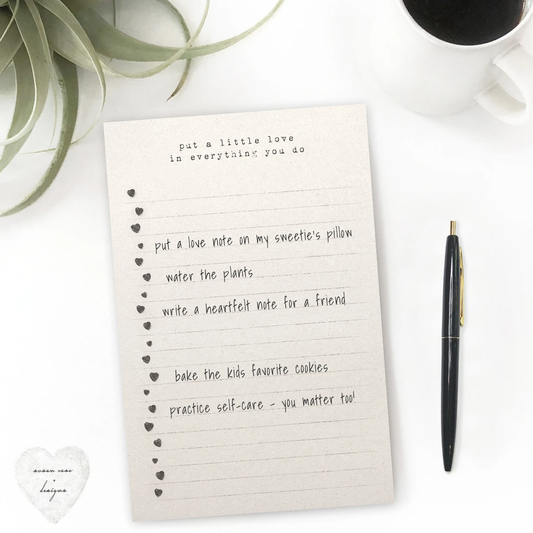 put a little love
in everything you do
put a love note on my sweetie's pillow
water the plants
write a heartfelt note for a friend
bake the kids favorite cookies
practice self-care - you matter too!
designs